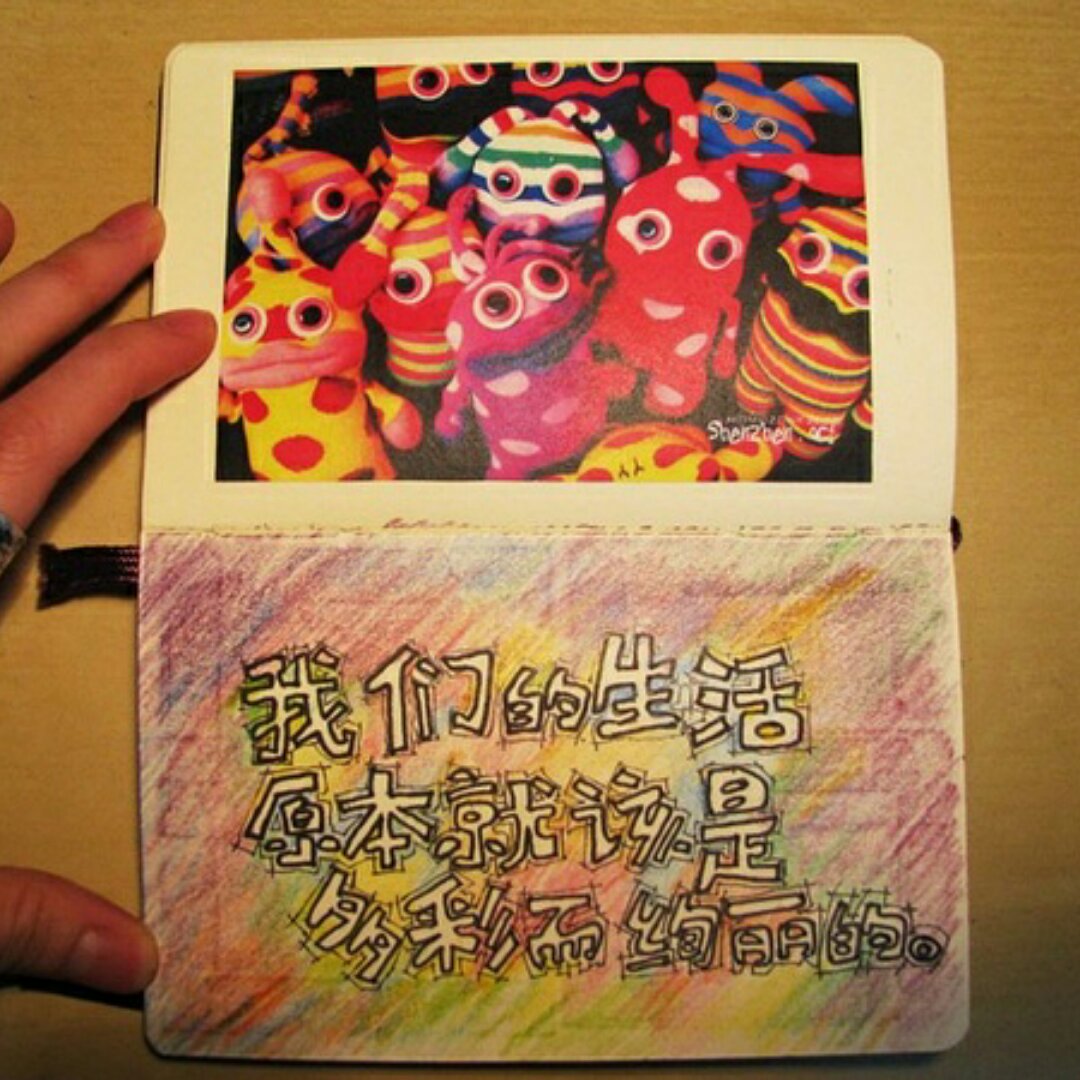 Shenzhen. oct
我们的生活
原本就该是
多彩而绚丽的。